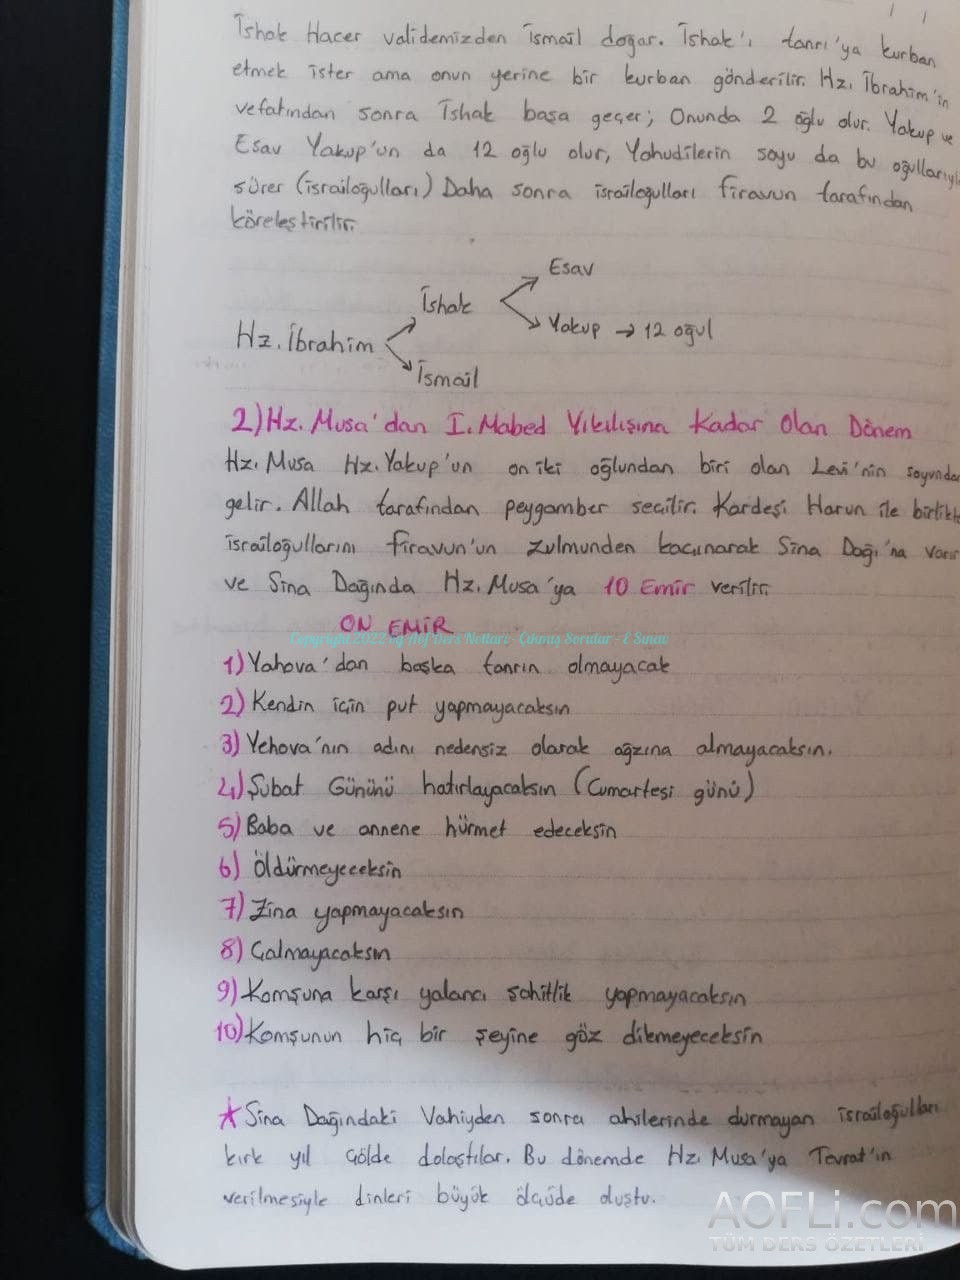 İshak Hacer validemizden İsmail doğar. İshak'ı tanrı'ya kurban
etmek ister ama onun yerine bir kurban gönderilir. Hz. İbrahim'in
vefatından sonra İshak başa geçer; Onunda 2 oğlu olur. Yakup ve
Esav Yakup'un da 12 oğlu olur, Yahudilerin soyu da bu oğullarıyla
sürer (israiloğulları) Daha sonra israiloğulları firavun tarafından
köreleştirilir.
Esav
İshak
Yakup → 12 oğul
Hz. İbrahim
İsmail
2) Hz. Musa'dan I. Mabed Yıkılışına Kadar Olan Dönem
Hz. Musa Hz. Yakup'un on iki oğlundan biri olan Levi'nin soyundan
gelir. Allah tarafından peygamber seçilir. Kardeşi Harun ile birlikte
israiloğullarını firavun'un zulmunden kaçınarak Sina Dağı'na varır
ve Sina Dağında Hz. Musa'ya 10 Emir verilir.
ON EMİR
Copyright 2022 by Aöf Ders Notları - Çıkmış Sorular - E Sınav
1) Yahova'dan başka tanrın olmayacak
2) Kendin için put yapmayacaksın
3) Yehova'nın adını nedensiz olarak ağzına almayacaksın.
4) Şubat Gününü hatırlayacaksın (Cumartesi günü)
5) Baba ve annene hürmet edeceksin
6) Öldürmeyeceksin
7) Zina yapmayacaksın
8) Çalmayacaksın
9) Komşuna karşı yalancı şahitlik yapmayacaksın
10) Komşunun hiç bir şeyine göz dikmeyeceksin
★ Sina Dağındaki Vahiyden sonra ahilerinde durmayan israiloğulları
kırk yıl çölde dolaştılar. Bu dönemde Hz. Musa'ya Tevrat'ın
verilmesiyle dinleri büyük ölçüde oluştu.
AOFLi.com
TÜM DERS ÖZETLERİ